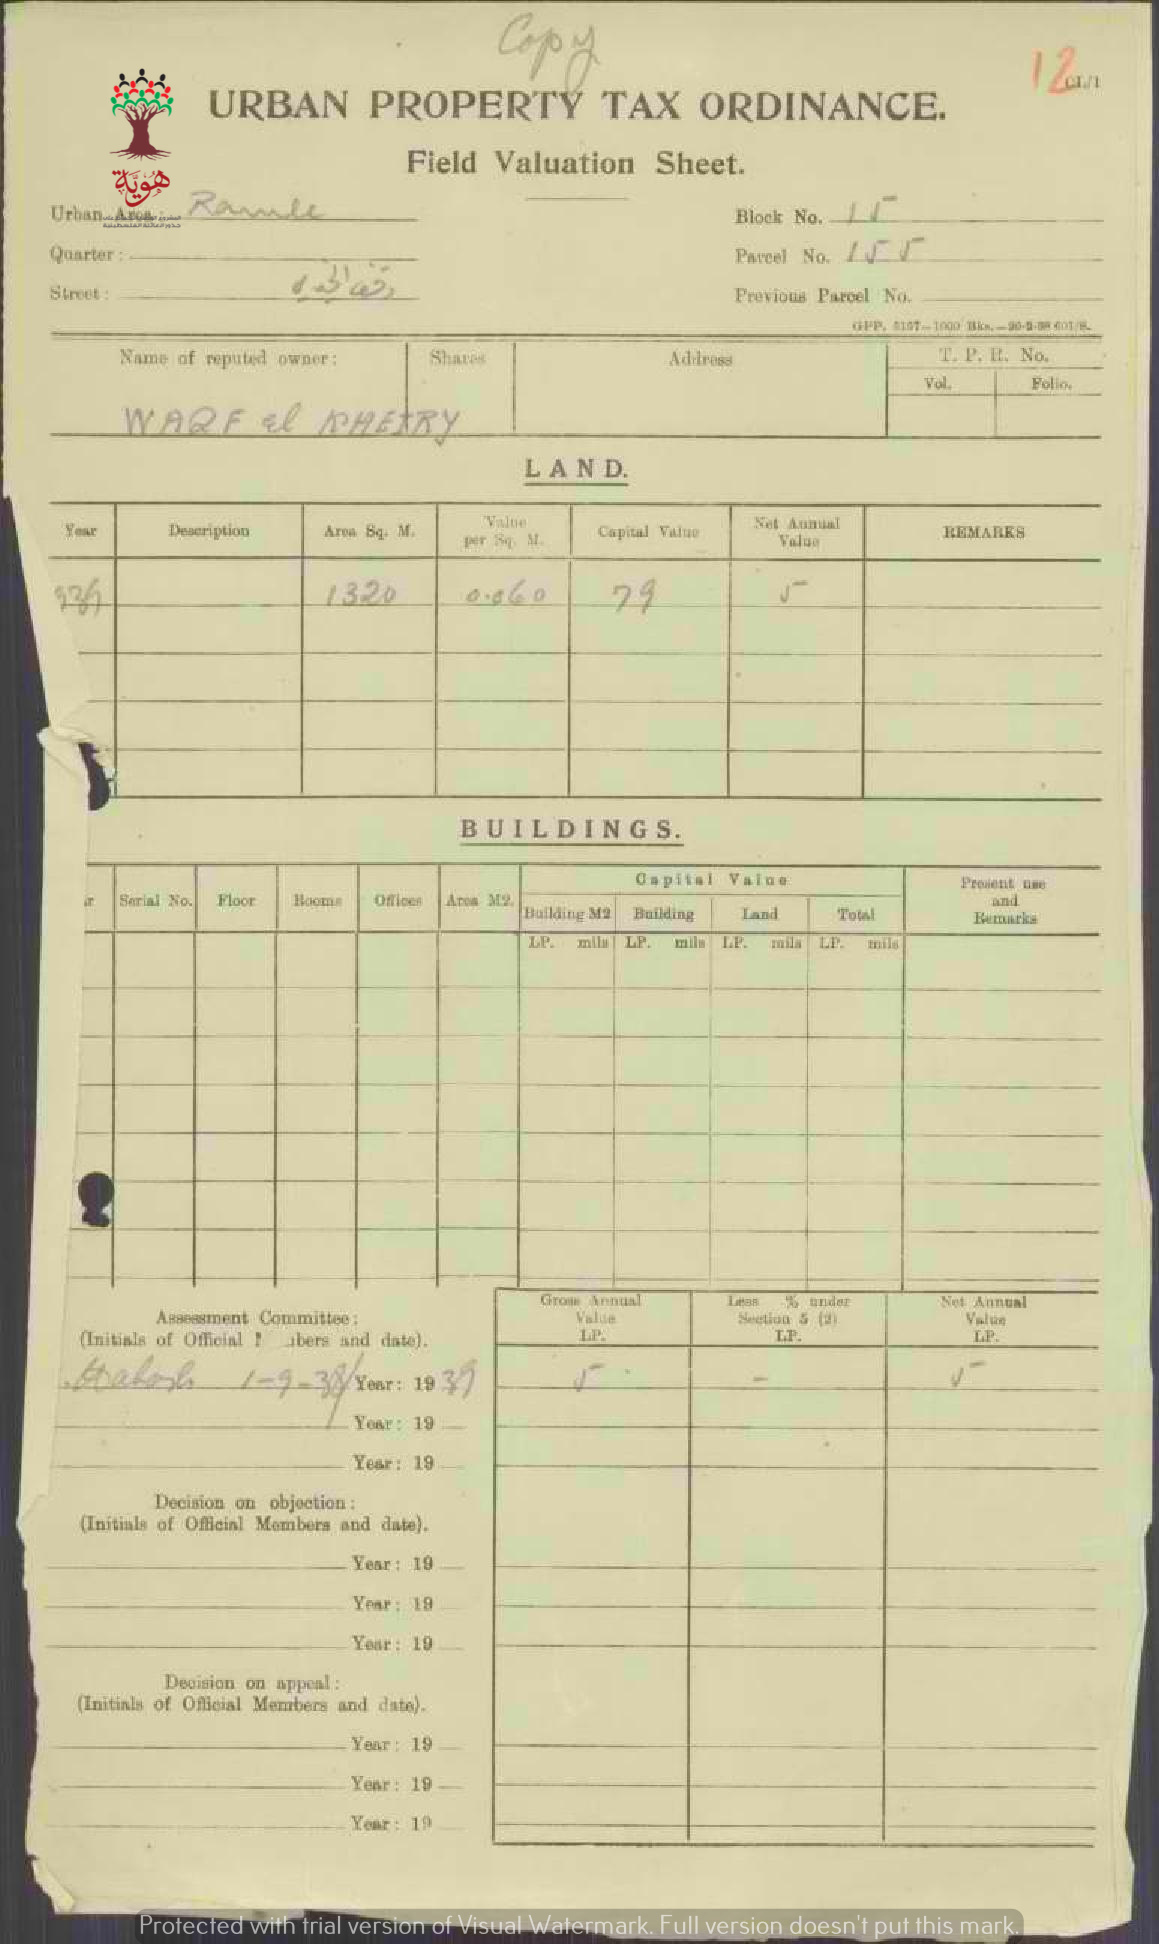 Copy
12
GL/1
هوية
URBAN PROPERTY TAX ORDINANCE.
Field Valuation Sheet.
Urban Area: Ramle
Block No. 15
Quarter:
Parcel No. 155
Street:
Previous Parcel No.
GPP. 5157—1000 Bks.—20-5-38 601/S.
Name of reputed owner: Shares Address T. P. R. No.
Vol. Folio.
WAQF el KHEIRY
LAND.
Year Description Area Sq. M. Value per Sq. M. Capital Value Net Annual Value REMARKS
939 1320 0.060 79 5
BUILDINGS.
r Serial No. Floor Rooms Offices Area M2. Capital Value Present use and Remarks
Building M2 Building Land Total
LP. mils LP. mils LP. mils LP. mils
Gross Annual Value LP. Less % under Section 5 (2) LP. Net Annual Value LP.
Assessment Committee:
(Initials of Official M bers and date).
Habash 1-9-38 Year: 1939 5 - 5
Year: 19
Year: 19
Decision on objection:
(Initials of Official Members and date).
Year: 19
Year: 19
Year: 19
Decision on appeal:
(Initials of Official Members and date).
Year: 19
Year: 19
Year: 19
Protected with trial version of Visual Watermark. Full version doesn't put this mark.